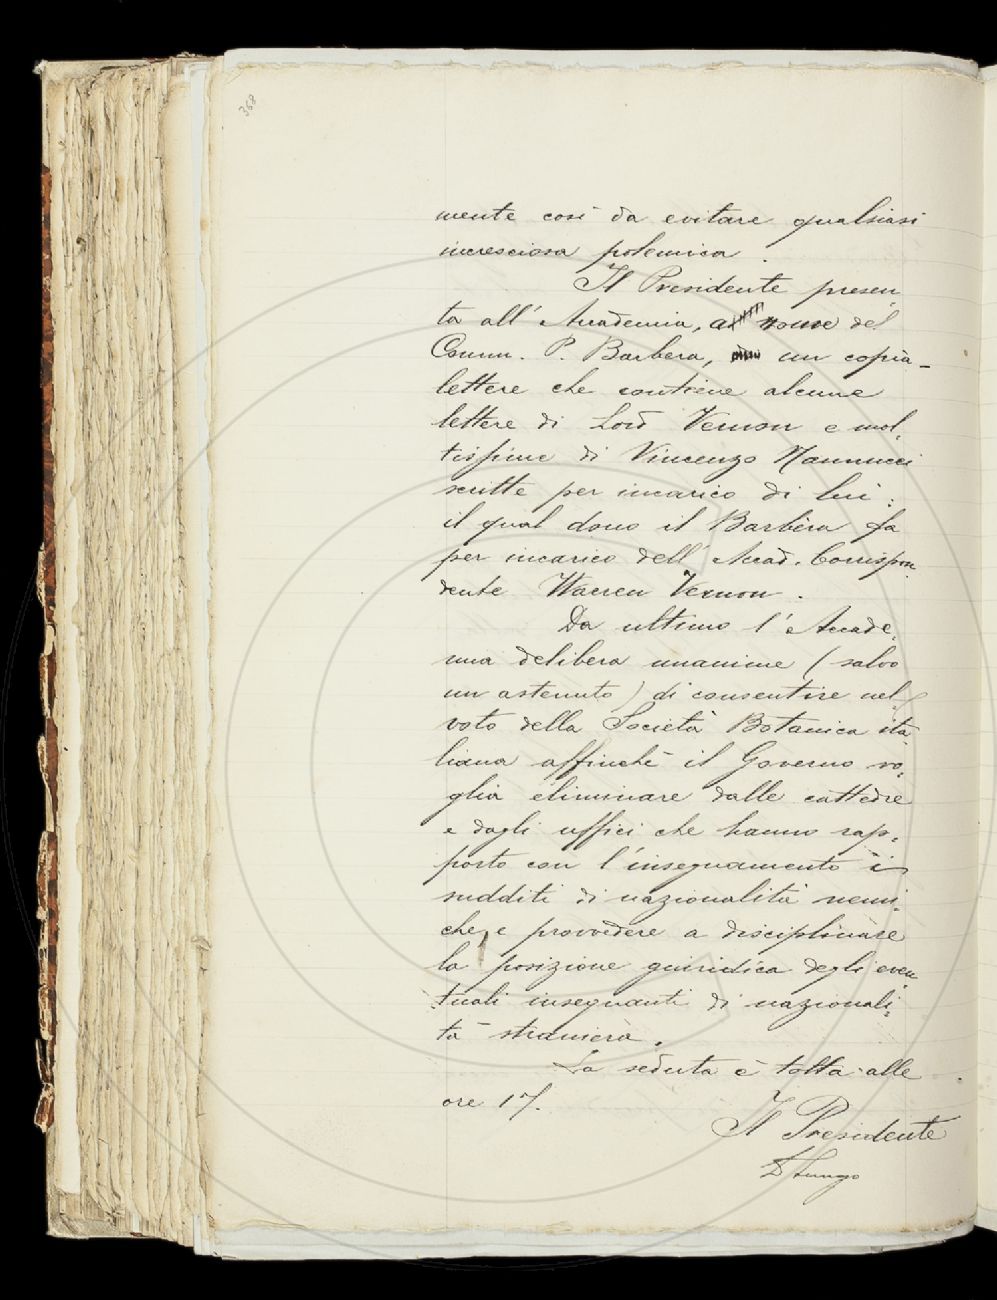 368
mente così da evitare qualsiasi
incresciosa polemica.
Il Presidente presen-
ta all'Accademia, a nome del
Comm. P. Barbèra, un copia-
lettere che contiene alcune
lettere di Lord Vernon e mol-
tissime di Vincenzo Nannucci
scritte per incarico di lui:
il qual dono il Barbèra fa
per incarico dell'Accad. Corrispon-
dente Warren Vernon.
Da ultimo l'Accade-
mia delibera unanime (salvo
un astenuto) di consentire nel
voto della Società Botanica ita-
liana affinchè il Governo vo-
glia eliminare dalle cattedre
e dagli uffici che hanno rap-
porto con l'insegnamento i
sudditi di nazionalità nemi-
che, e provvedere a disciplinare
la posizione giuridica degli even-
tuali insegnanti di nazionali-
tà straniera.
La seduta è tolta alle
ore 17.
Il Presidente
D Lungo